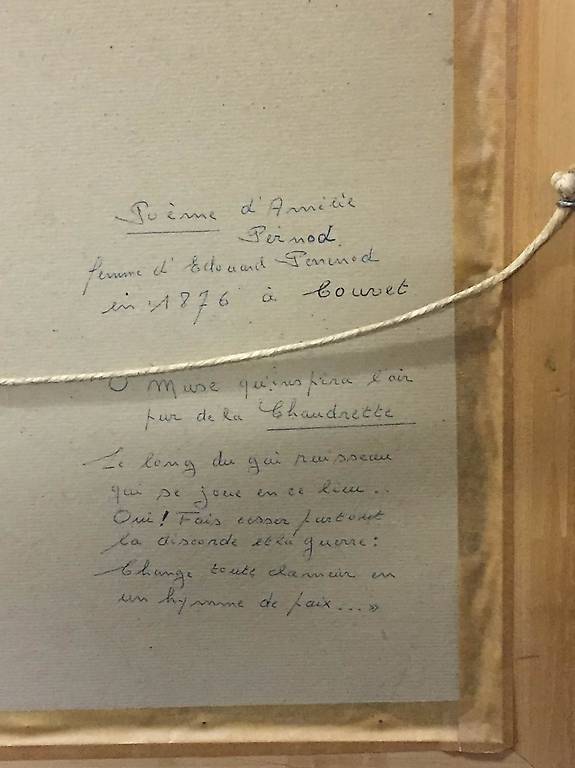 Poème d'Amélie
Pernod.
femme d'Edouard Pernod
en 1876 à Couvet
O Muse qu'inspira l'air
pur de la Chaudrette
Le long du gai ruisseau
qui se joue en ce lieu..
Oui! Fais cesser partout
la discorde et la guerre:
Change toute clameur en
un hymne de paix...»